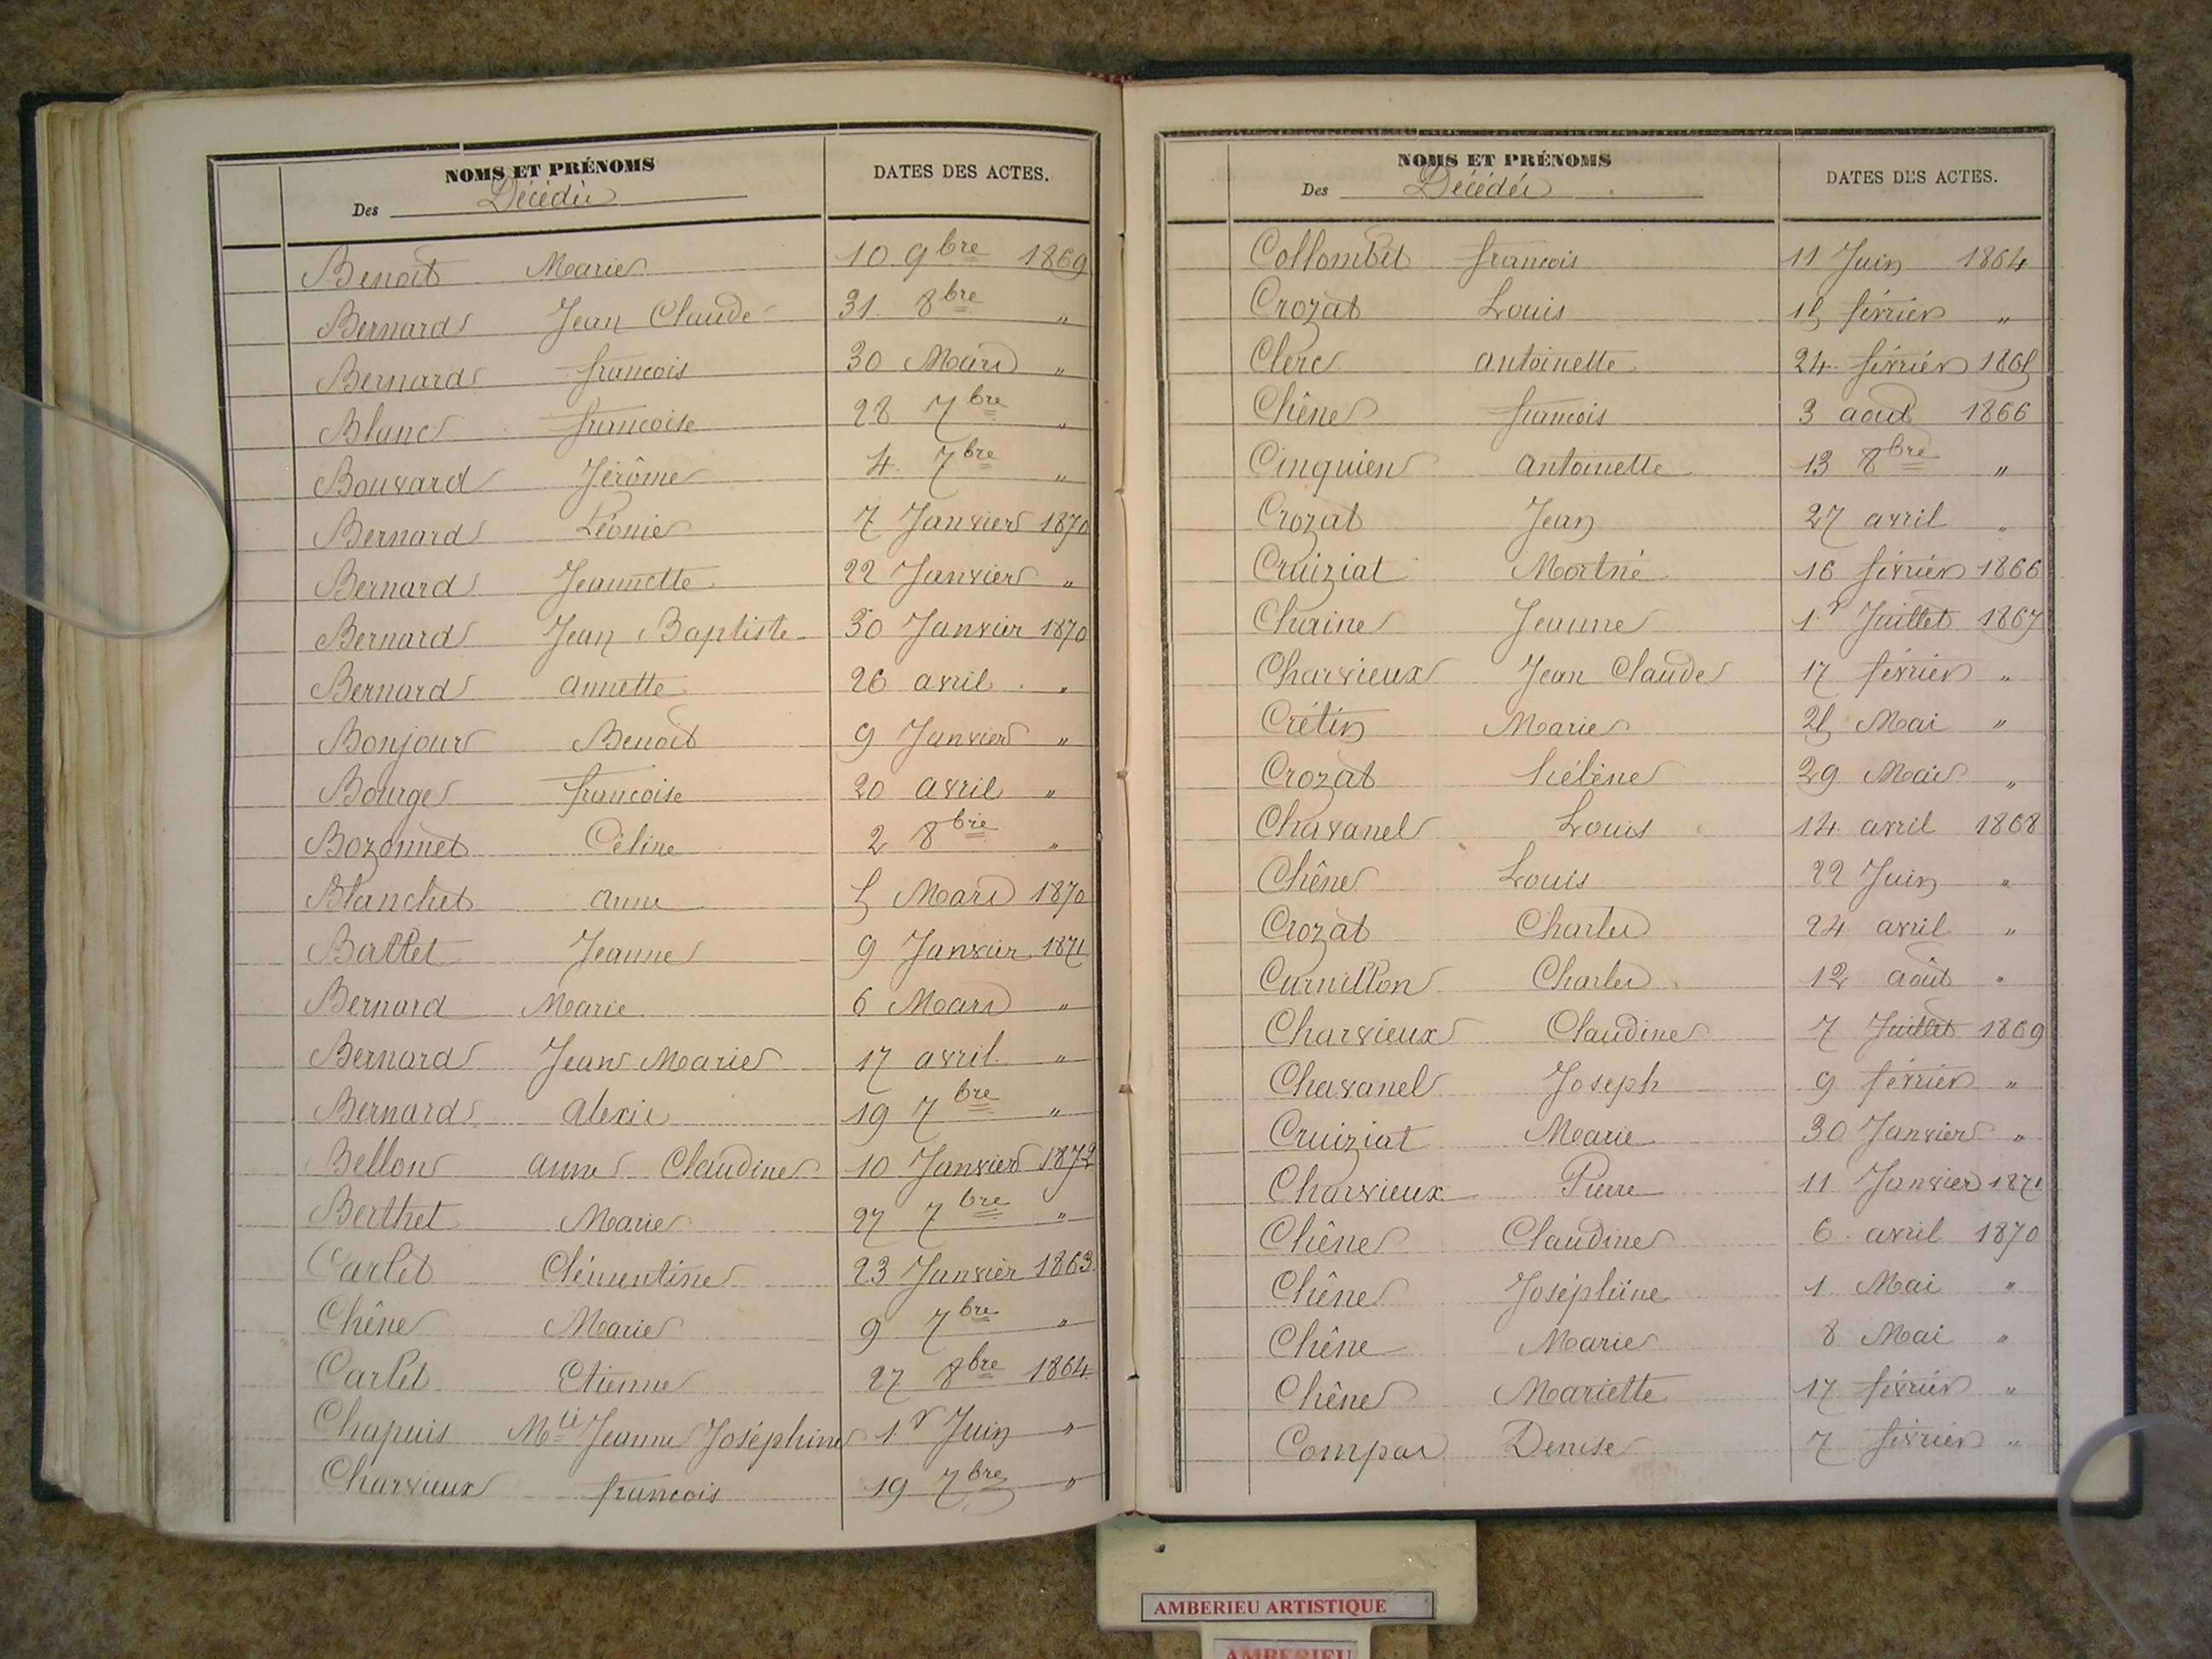 NOMS ET PRÉNOMS
DATES DES ACTES.
Des Décédés
Benoit Marie 10 9bre 1869
Bernard Jean Claude 31 8bre "
Bernard francois 30 Mars "
Blanc francoise 28 7bre "
Bouvard Jérôme 4 7bre "
Bernard Léonie 7 Janvier 1870
Bernard Jeannette 22 Janvier "
Bernard Jean Baptiste 30 Janvier 1870
Bernard annette 26 avril "
Bonjour Benoit 9 Janvier "
Bourge francoise 20 avril "
Bozonnet Céline 2 8bre "
Blanchet anne 5 Mars 1870
Battet Jeanne 9 Janvier 1871
Bernard Marie 6 Mars "
Bernard Jean Marie 17 avril "
Bernard alexis 19 7bre "
Bellon anne Claudine 10 Janvier 1872
Berthet Marie 27 7bre "
Carlet Clémentine 23 Janvier 1863
Chêne Marie 9 7bre "
Carlet Etienne 27 8bre 1864
Chapuis Mlle Jeanne Joséphine 1r Juin "
Charvieux francois 19 7bre "
NOMS ET PRÉNOMS
DATES DES ACTES.
Des Décédés
Collombet francois 11 Juin 1864
Crozat Louis 15 février "
Clerc antoinette 24 février 1865
Chêne francois 3 aout 1866
Cinquien antoinette 13 8bre "
Crozat Jean 27 avril "
Cruiziat Mortné 16 février 1866
Chaine Jeanne 1r Juillet 1867
Charvieux Jean Claude 17 février "
Crétin Marie 25 Mai "
Crozat hélène 29 Mai "
Chavanel Louis 14 avril 1868
Chêne Louis 22 Juin "
Crozat Charles 24 avril "
Curnillon Charles 12 août "
Charvieux Claudine 7 Juillet 1869
Chavanel Joseph 9 février "
Cruiziat Marie 30 Janvier "
Charvieux Pierre 11 Janvier 1871
Chêne Claudine 6 avril 1870
Chêne Joséphine 1 Mai "
Chêne Marie 8 Mai "
Chêne Mariette 17 février "
Compas Denise 7 février "
AMBERIEU ARTISTIQUE
AMBERIEU